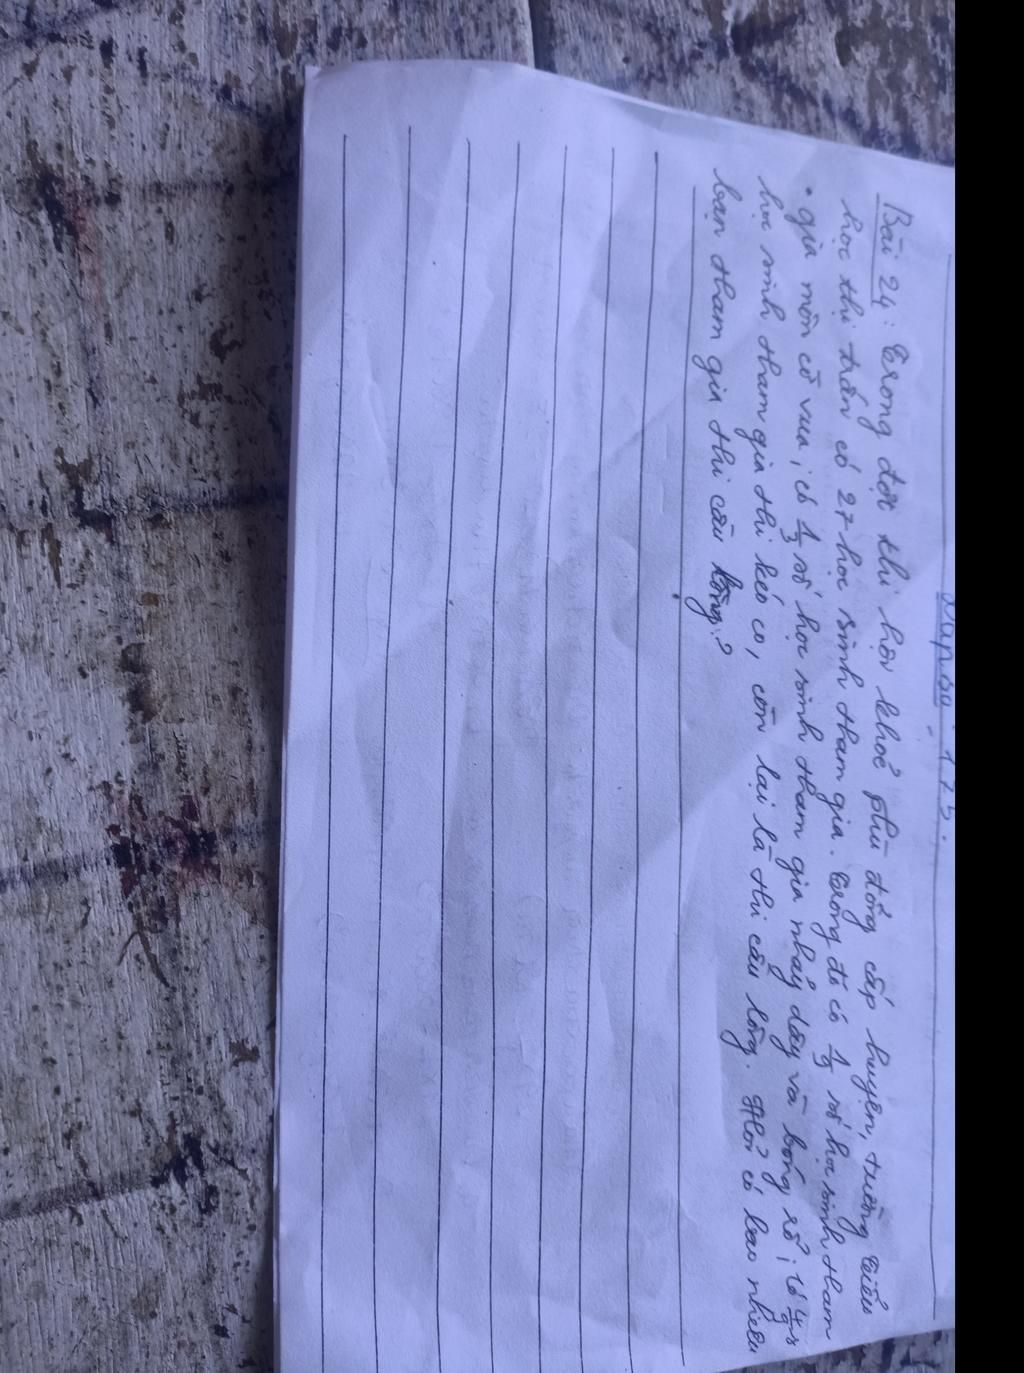 Đáp số: 175.
Bài 24: Trong đợt thi hội khoẻ phù đổng cấp huyện, trường tiểu
học thị trấn có 27 học sinh tham gia. Trong đó có 1/3 số học sinh tham
gia môn cờ vua, có 1/3 số học sinh tham gia nhảy dây và bóng rổ, có 1/9
học sinh tham gia thi kéo co, còn lại là thi cầu lông. Hỏi có bao nhiêu
bạn tham gia thi cầu lông?